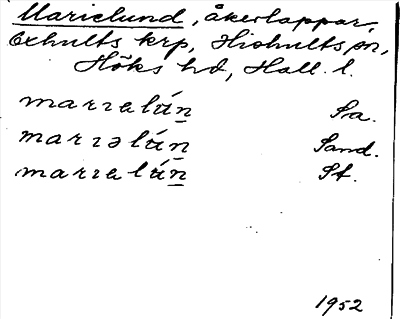 Marielund, åkerlappar,
Exhults krp, Hishults sn,
Höks hd, Hall. l.
marɪalún Sa.
marɪəlún Sand.
marɪalún St.
1952